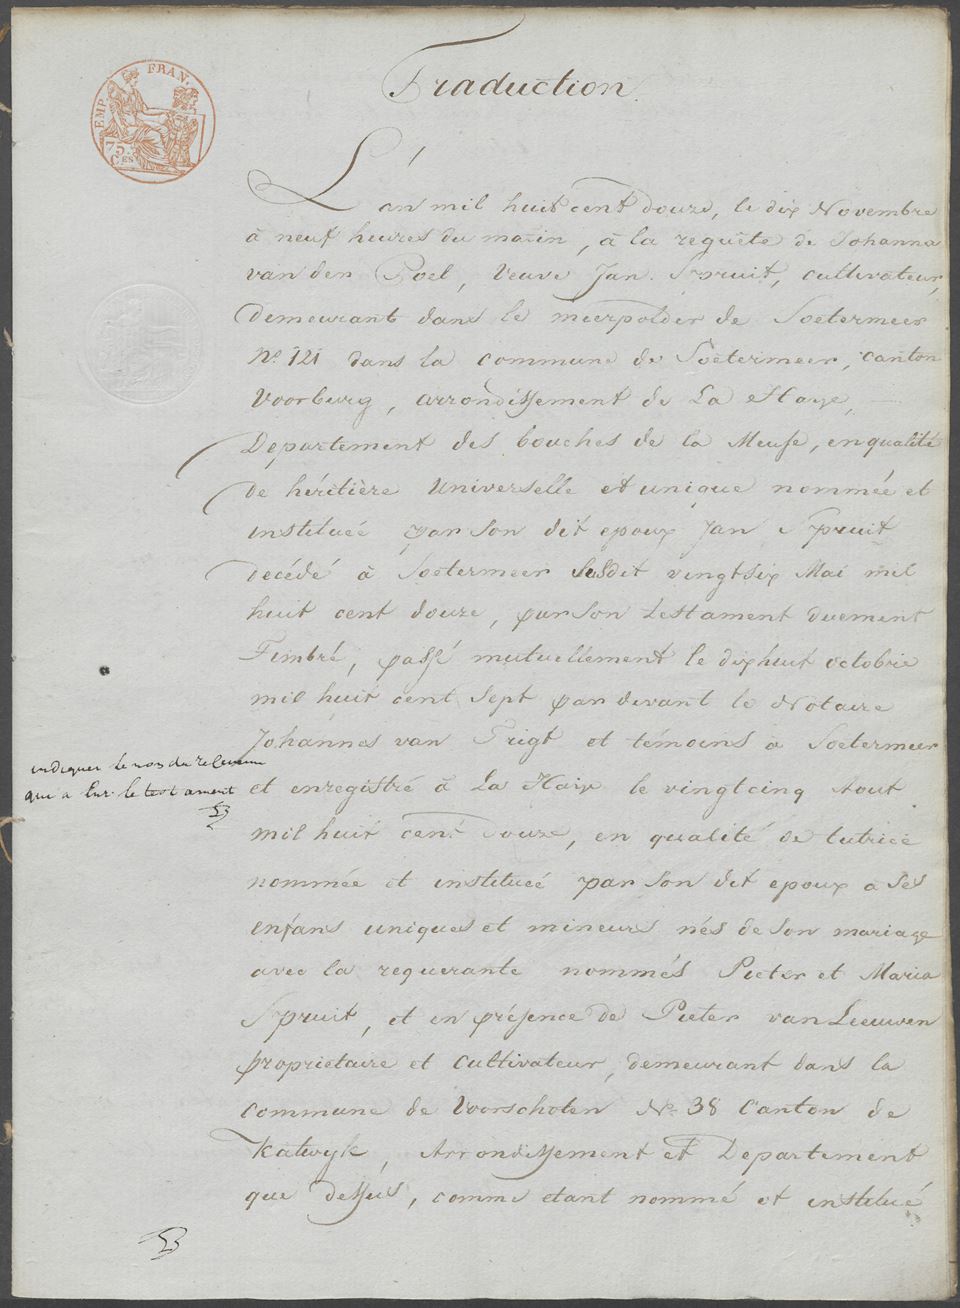 EMP. FRAN.
75
CES
Traduction
L'an mil huit cent douze, le dix Novembre
à neuf heures du matin, à la requête de Johanna
van der Poel, Veuve Jan Spruit, cultivateur,
demeurant dans le meerpolder de Soetermeer
No. 121 dans la commune de Soetermeer, canton
Voorburg, arrondissement de La Haye,
Departement des bouches de la Meuse, en qualité
de héritière Universelle et unique nommée et
instituée par son dit epoux Jan Spruit
décédé à Soetermeer susdit vingtsix Mai mil
huit cent douze, par son testament duement
Timbré, passé mutuellement le dixhuit octobre
mil huit cent sept par devant le Notaire
Johannes van Trigt et témoins à Soetermeer
et enregistré à La Haye le vingtcinq Aout
mil huit cent douze, en qualité de tutrice
nommée et instituée par son dit epoux à ses
enfans uniques et mineurs nés de son mariage
avec la requerante nommés Pieter et Maria
Spruit, et en présence de Pieter van Leeuwen
propriétaire et cultivateur, demeurant dans la
commune de Voorschoten No. 38 Canton de
Katwyk, Arrondissement et Departement
que dessus, comme etant nommé et institué
indiquer le nom du receveur
qui a Enr. le testament